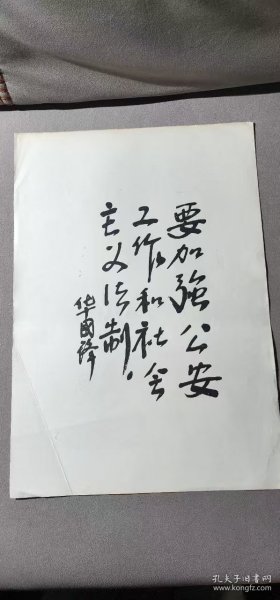 要加強公安
工作和社会
主义法制.
华国锋
孔夫子旧书网